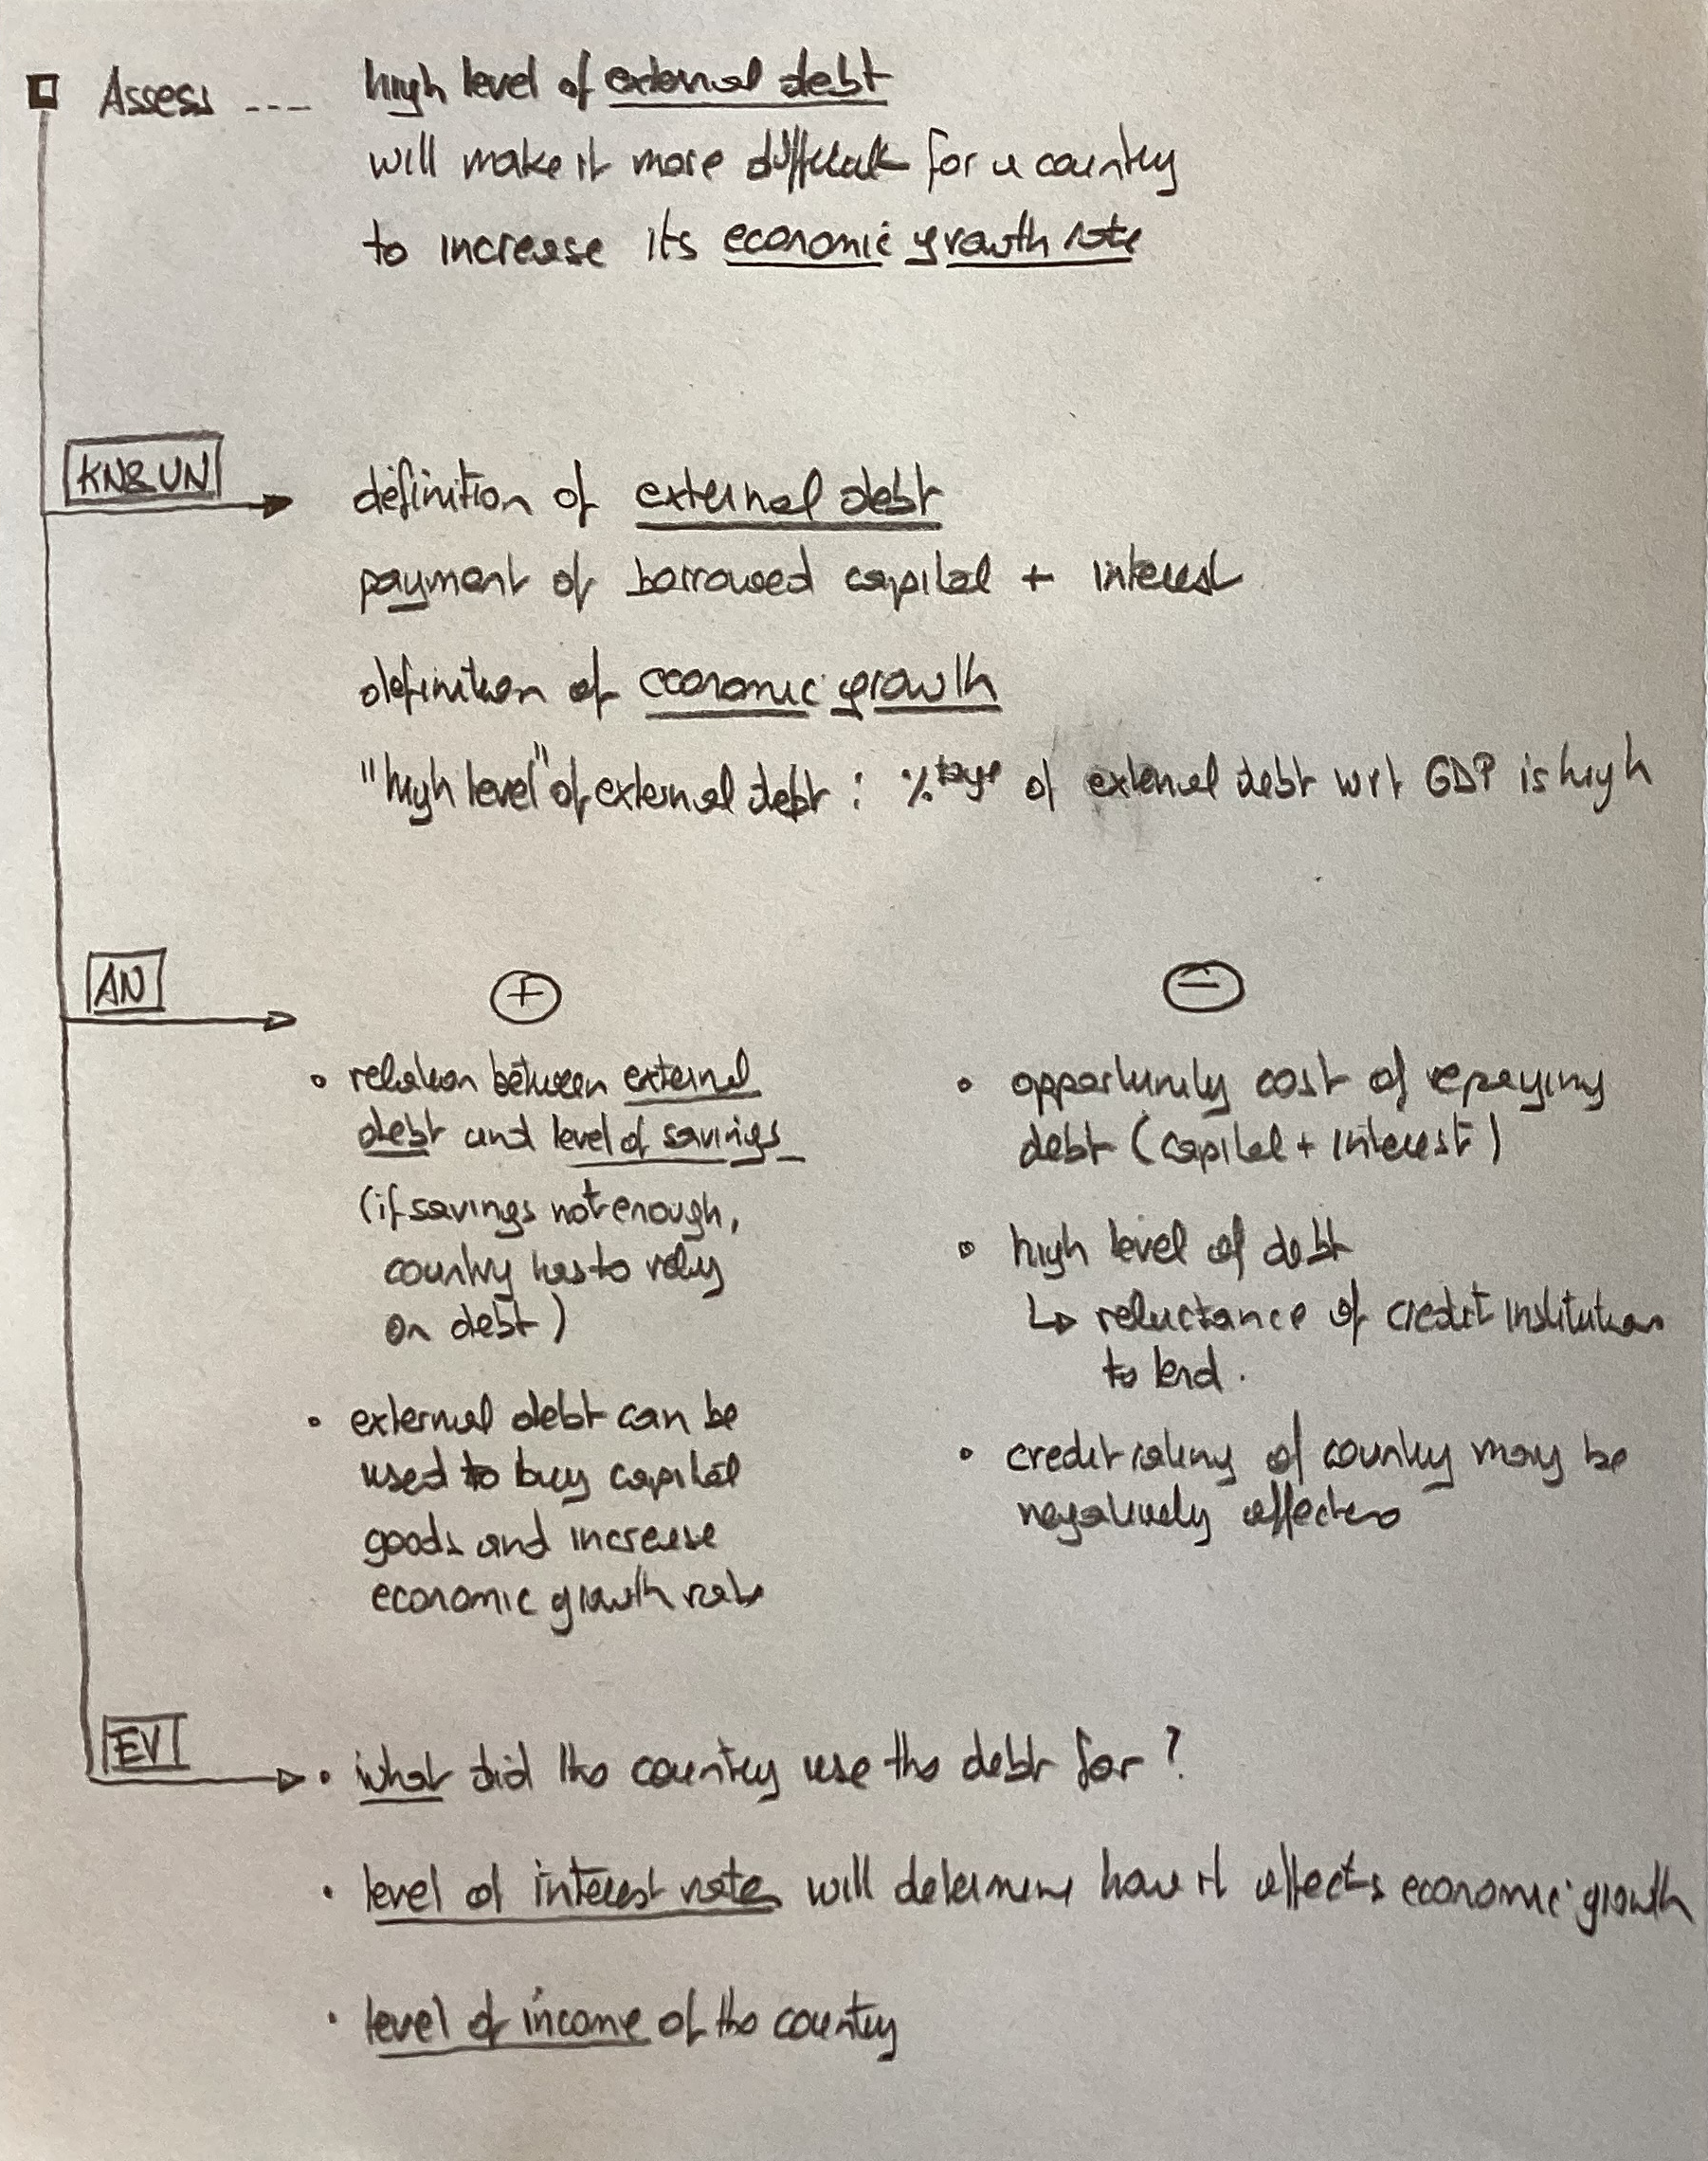 Assess ---- high level of external debt
will make it more difficult for a country
to increase its economic growth rate
KN&UN
definition of external debt
payment of borrowed capital + interest
definition of economic growth
"high level" of external debt : %tage of external debt wrt GDP is high
AN
+
• relation between external
debt and level of savings
(if savings not enough,
country has to rely
on debt)
• external debt can be
used to buy capital
goods and increase
economic growth rate
−
• opportunity cost of repaying
debt (capital + interest)
• high level of debt
↳ reluctance of credit institution
to lend.
• credit rating of country may be
negatively affected
EV
• what did the country use the debt for?
• level of interest rates will determine how it affects economic growth
• level of income of the country